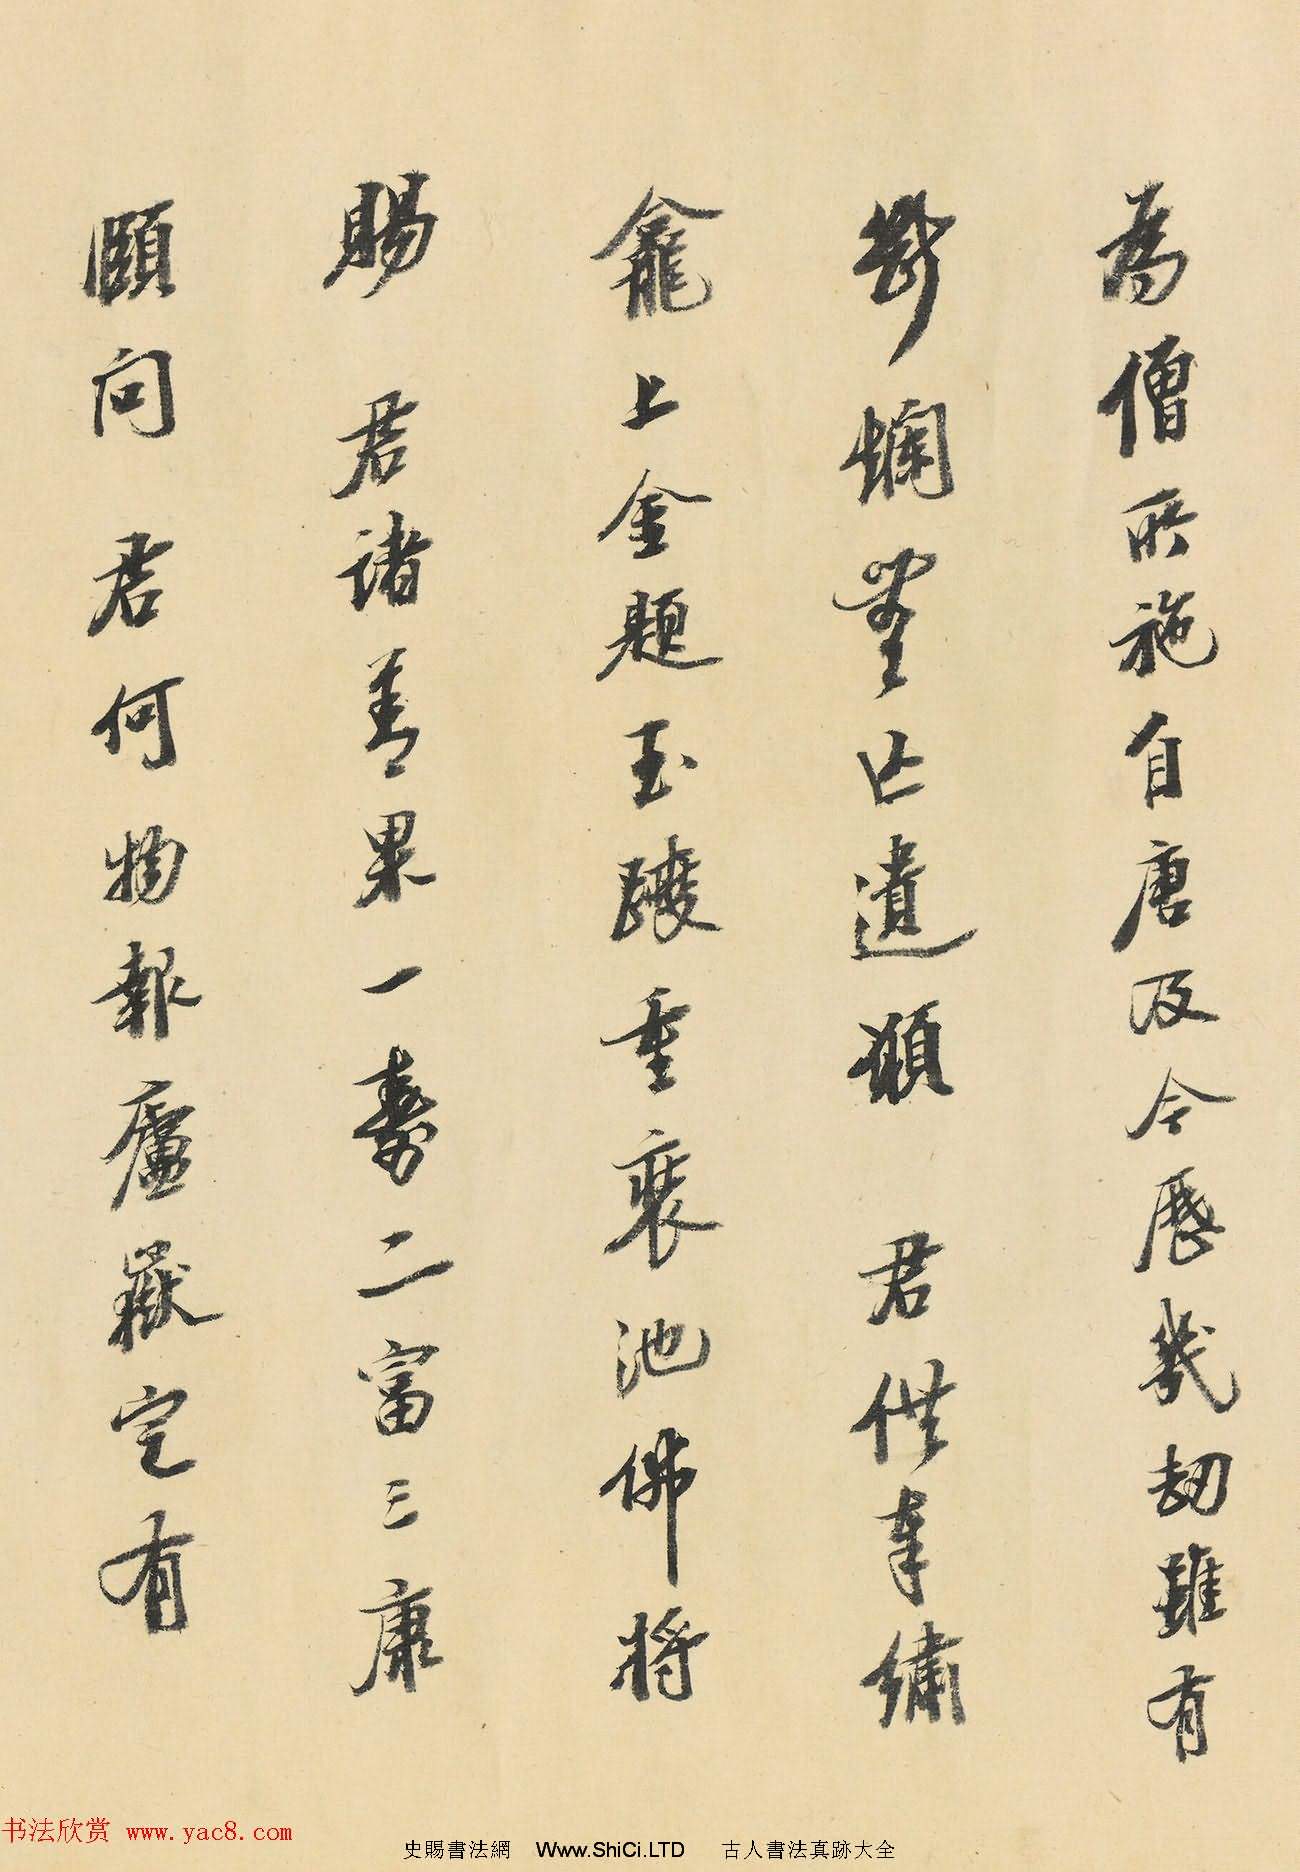 為僧所施自唐及今歷幾劫雖有
斷爛無亡遺願 君供奉繡
龕上金題玉躞重裝池佛將
賜 君諸善果一壽二富三康
頤問 君何物報廬嶽定有
书法欣赏 www.yac8.com
史賜書法網 Www.ShiCi.LTD 古人書法真跡大全